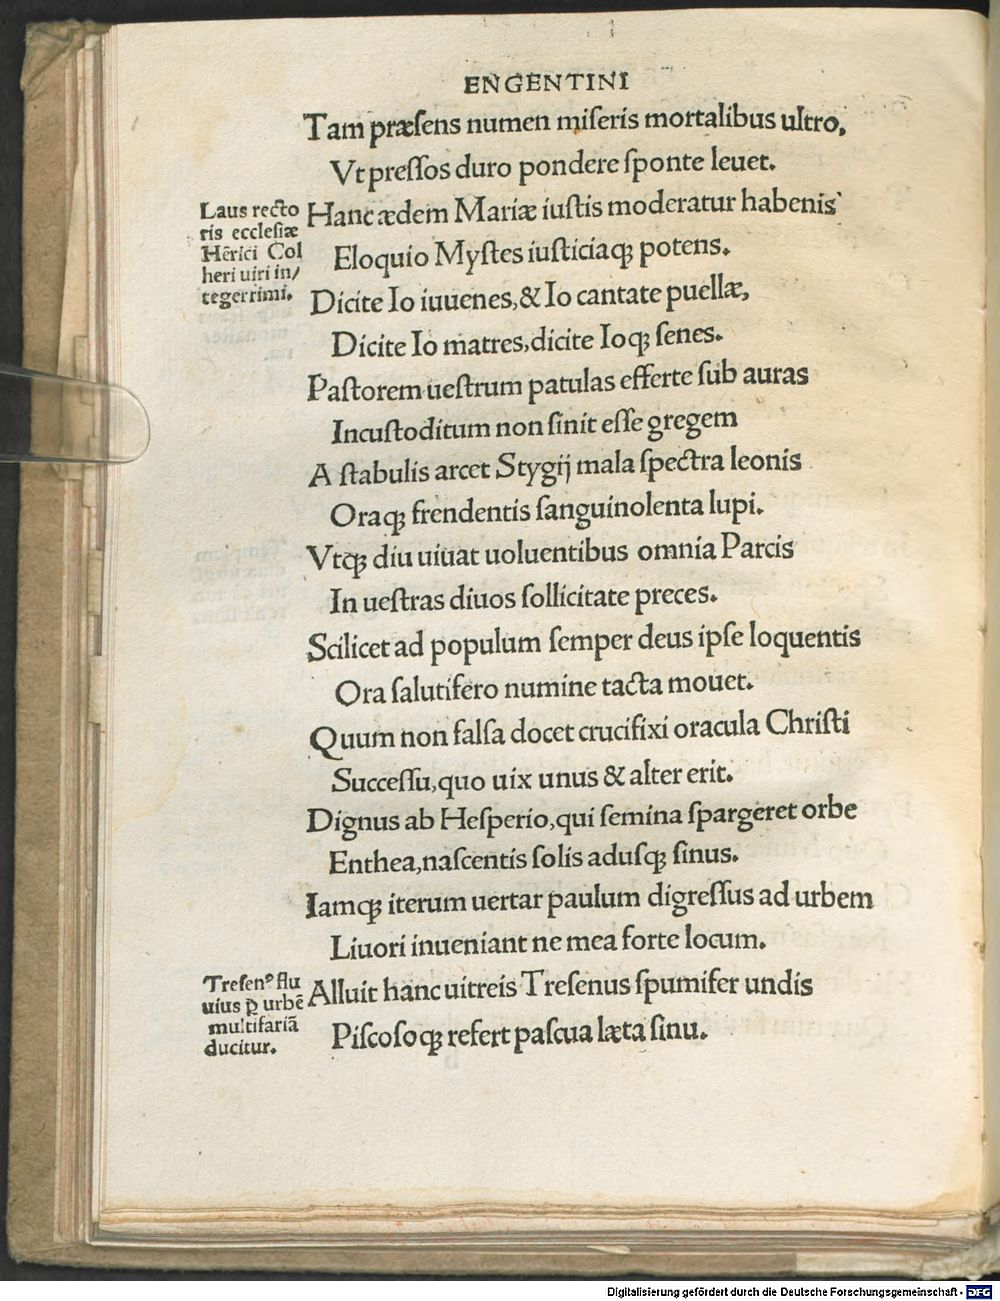 ENGENTINI
Tam præſens numen miſeris mortalibus ultro,
Vt preſſos duro pondere ſponte leuet.
Laus recto
ris eccleſiæ
Hẽrici Col
heri uiri in/
tegerrimi.
Hanc ædem Mariæ iuſtis moderatur habenis
Eloquio Myſtes iuſticiaqꝫ potens.
Dicite Io iuuenes,& Io cantate puellæ,
Dicite Io matres,dicite Ioqꝫ ſenes.
Paſtorem ueſtrum patulas efferte ſub auras
Incuſtoditum non ſinit eſſe gregem
A ſtabulis arcet Stygij mala ſpectra leonis
Oraqꝫ frendentis ſanguinolenta lupi.
Vtqꝫ diu uiuat uoluentibus omnia Parcis
In ueſtras diuos ſollicitate preces.
Scilicet ad populum ſemper deus ipſe loquentis
Ora ſalutifero numine tacta mouet.
Quum non falſa docet crucifixi oracula Chriſti
Succeſſu,quo uix unus & alter erit.
Dignus ab Heſperio,qui ſemina ſpargeret orbe
Enthea,naſcentis ſolis aduſqꝫ ſinus.
Iamqꝫ iterum uertar paulum digreſſus ad urbem
Liuori inueniant ne mea forte locum.
Treſenꝰ flu
uius ꝑ urbẽ
multifariã
ducitur.
Alluit hanc uitreis Treſenus ſpumifer undis
Piſcoſoqꝫ refert paſcua læta ſinu.
Digitalisierung gefördert durch die Deutsche Forschungsgemeinschaft - DFG